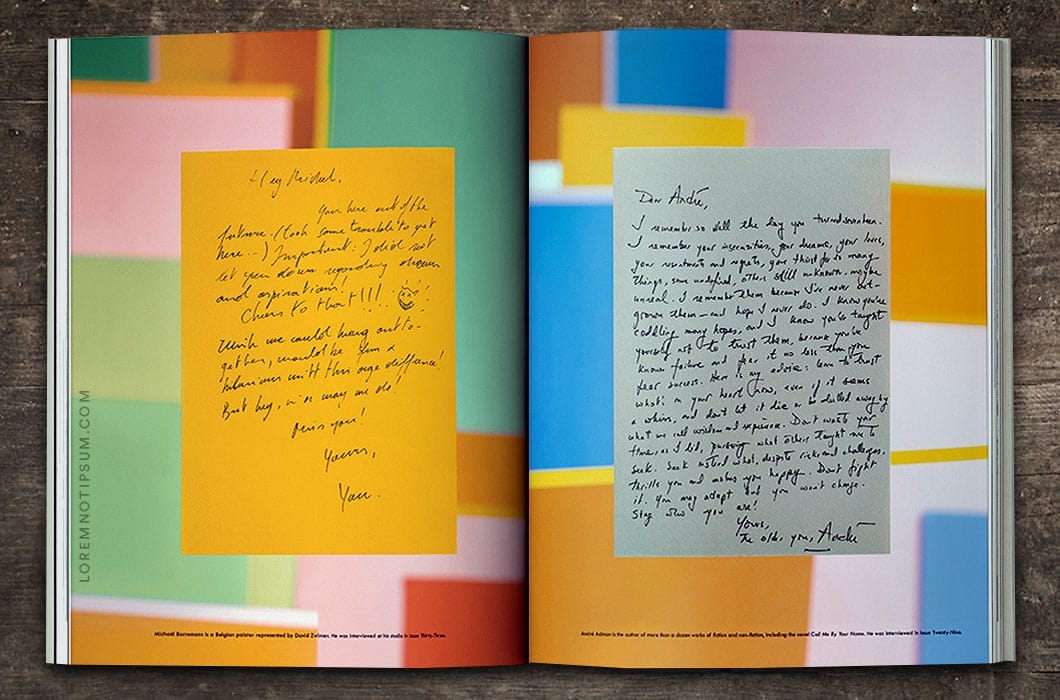 Hey Michaël,
Your here out of the
future. (took some trouble to get
here...) Important: I did not
let you down regarding dreams
and aspirations!
Cheers to that!!!
Wish we could hang out to-
gether, would be fun &
hilarious with this age difference!
But hey, in a way we do!
Miss you!
Yours,
You.
Michaël Borremans is a Belgian painter represented by David Zwirner. He was interviewed at his studio in Issue Thirty-Three.
LOREMNOTIPSUM.COM
Dear André,
I remember so well the day you turned seventeen.
I remember your insecurities, your dreams, your loves,
your resentments and regrets, your thirst for so many
things, some undefined, others still unknown, maybe
unreal. I remember them because I've never out-
grown them—and hope I never do. I know you're
coddling many hopes, and I know you've taught
yourself not to trust them, because you've
known failure and fear it no less than you
fear success. Here is my advice: learn to trust
what's in your heart now, even if it seems
a whim, and don't let it die or be dulled away by
what we call wisdom and experience. Don't waste your
time, as I did, pursuing what others taught me to
seek. Seek instead what, despite risks and challenges,
thrills you and makes you happy. Don't fight
it. You may adapt but you won't change.
Stay who you are!
Yours,
The older you, André
André Aciman is the author of more than a dozen works of fiction and non-fiction, including the novel Call Me By Your Name. He was interviewed in Issue Twenty-Nine.